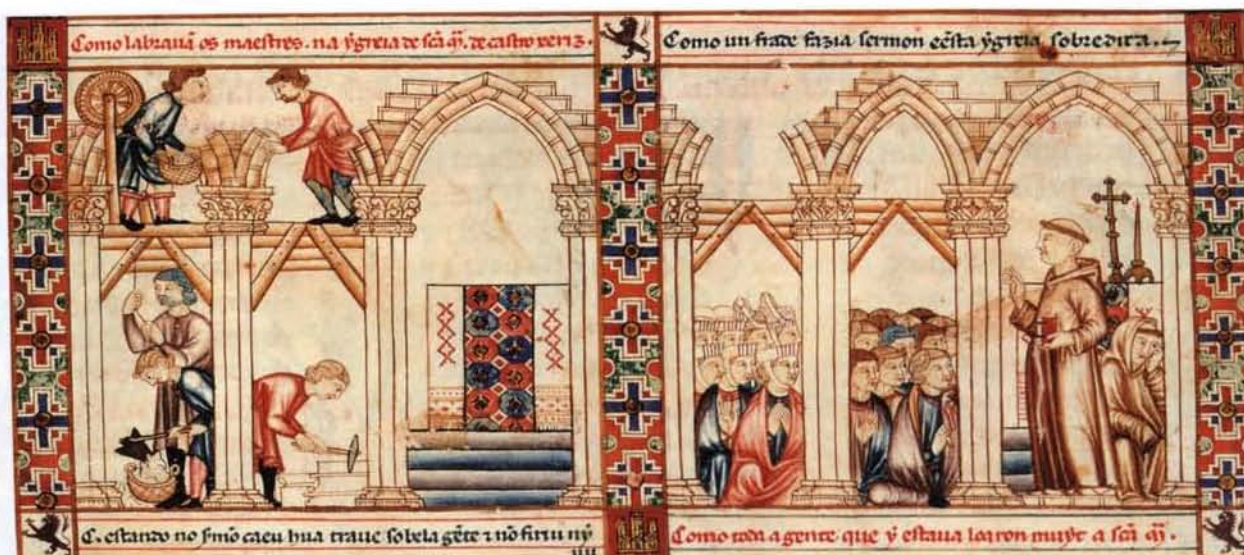 Como labrauã os maestres. na ygreia de scã ⁊ de castro xeriz.
Como un frade fazia sermon eēsta ygreia sobredita.
C. estando no smõ caeu hua traue sobela gẽte ⁊ nõ firiu nỹ
Como toda a gente que y estaua loaron muyt a scã